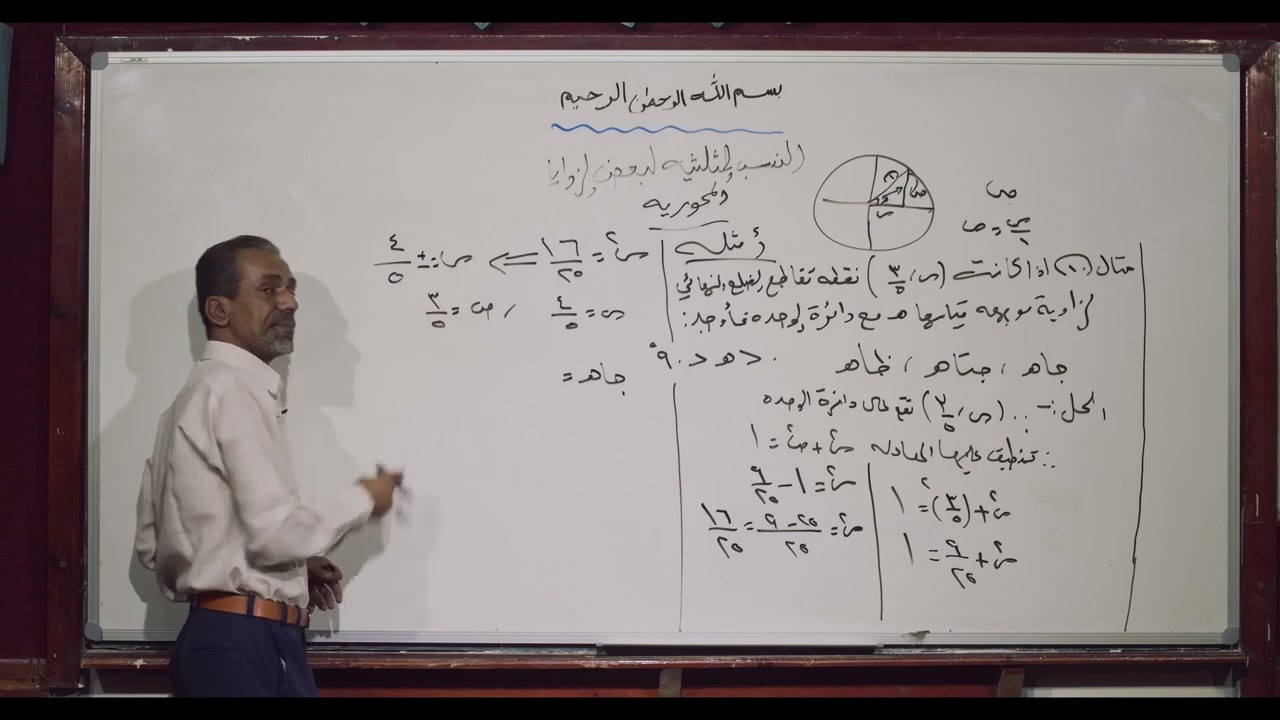 بسم الله الرحمن الرحيم
النسب المثلثيه لبعض الزوايا
المحوريه
أمثله
مثال (١٠) اذا كانت (س، ٣/٥) نقطه تقاطع الضلع النهائي
لزاوية موجهه قياسها هـ مع دائرة الوحده فأوجد:
جاهـ ، جتاهـ ، ظاهـ ٠ < هـ < ٩٠°
الحل :- ∵ (س، ٣/٥) تقع على دائرة الوحده
∴ تنطبق عليها المعادله س² + ص² = ١
س² + (٣/٥)² = ١
س² + ٩/٢٥ = ١
س² = ١ - ٩/٢٥
س² = (٢٥ - ٩)/٢٥ = ١٦/٢٥
س² = ١٦/٢٥ ⇐ س = ± ٤/٥
س = ٤/٥ ، ص = ٣/٥
جاهـ =
ص
ص/١ = ص